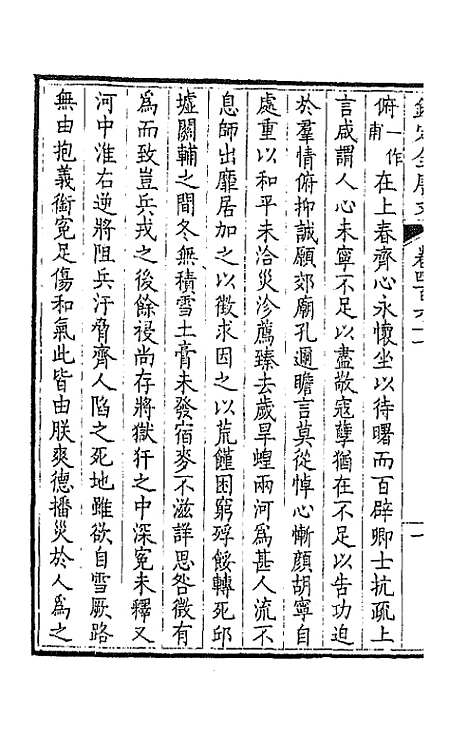 俯一作甫在上春齊心永懷坐以待曙而百辟卿士抗疏上
言咸謂人心未寧不足以盡敬寇孽猶在不足以告功迫
於羣情俯抑誠願郊廟孔邇瞻言莫從悼心慚顏胡寧自
處重以和平未洽災沴薦臻去歲旱蝗兩河爲甚人流不
息師出靡居加之以徵求因之以荒饉困窮殍餒轉死邱
墟關輔之間冬無積雪土膏未發宿麥不滋詳思咎徵有
爲而致豈兵戎之後餘祲尚存將獄犴之中深冤未釋又
河中淮右逆將阻兵汙脅齊人陷之死地雖欲自雪厥路
無由抱義銜冤足傷和氣此皆由朕爽德播災於人爲之